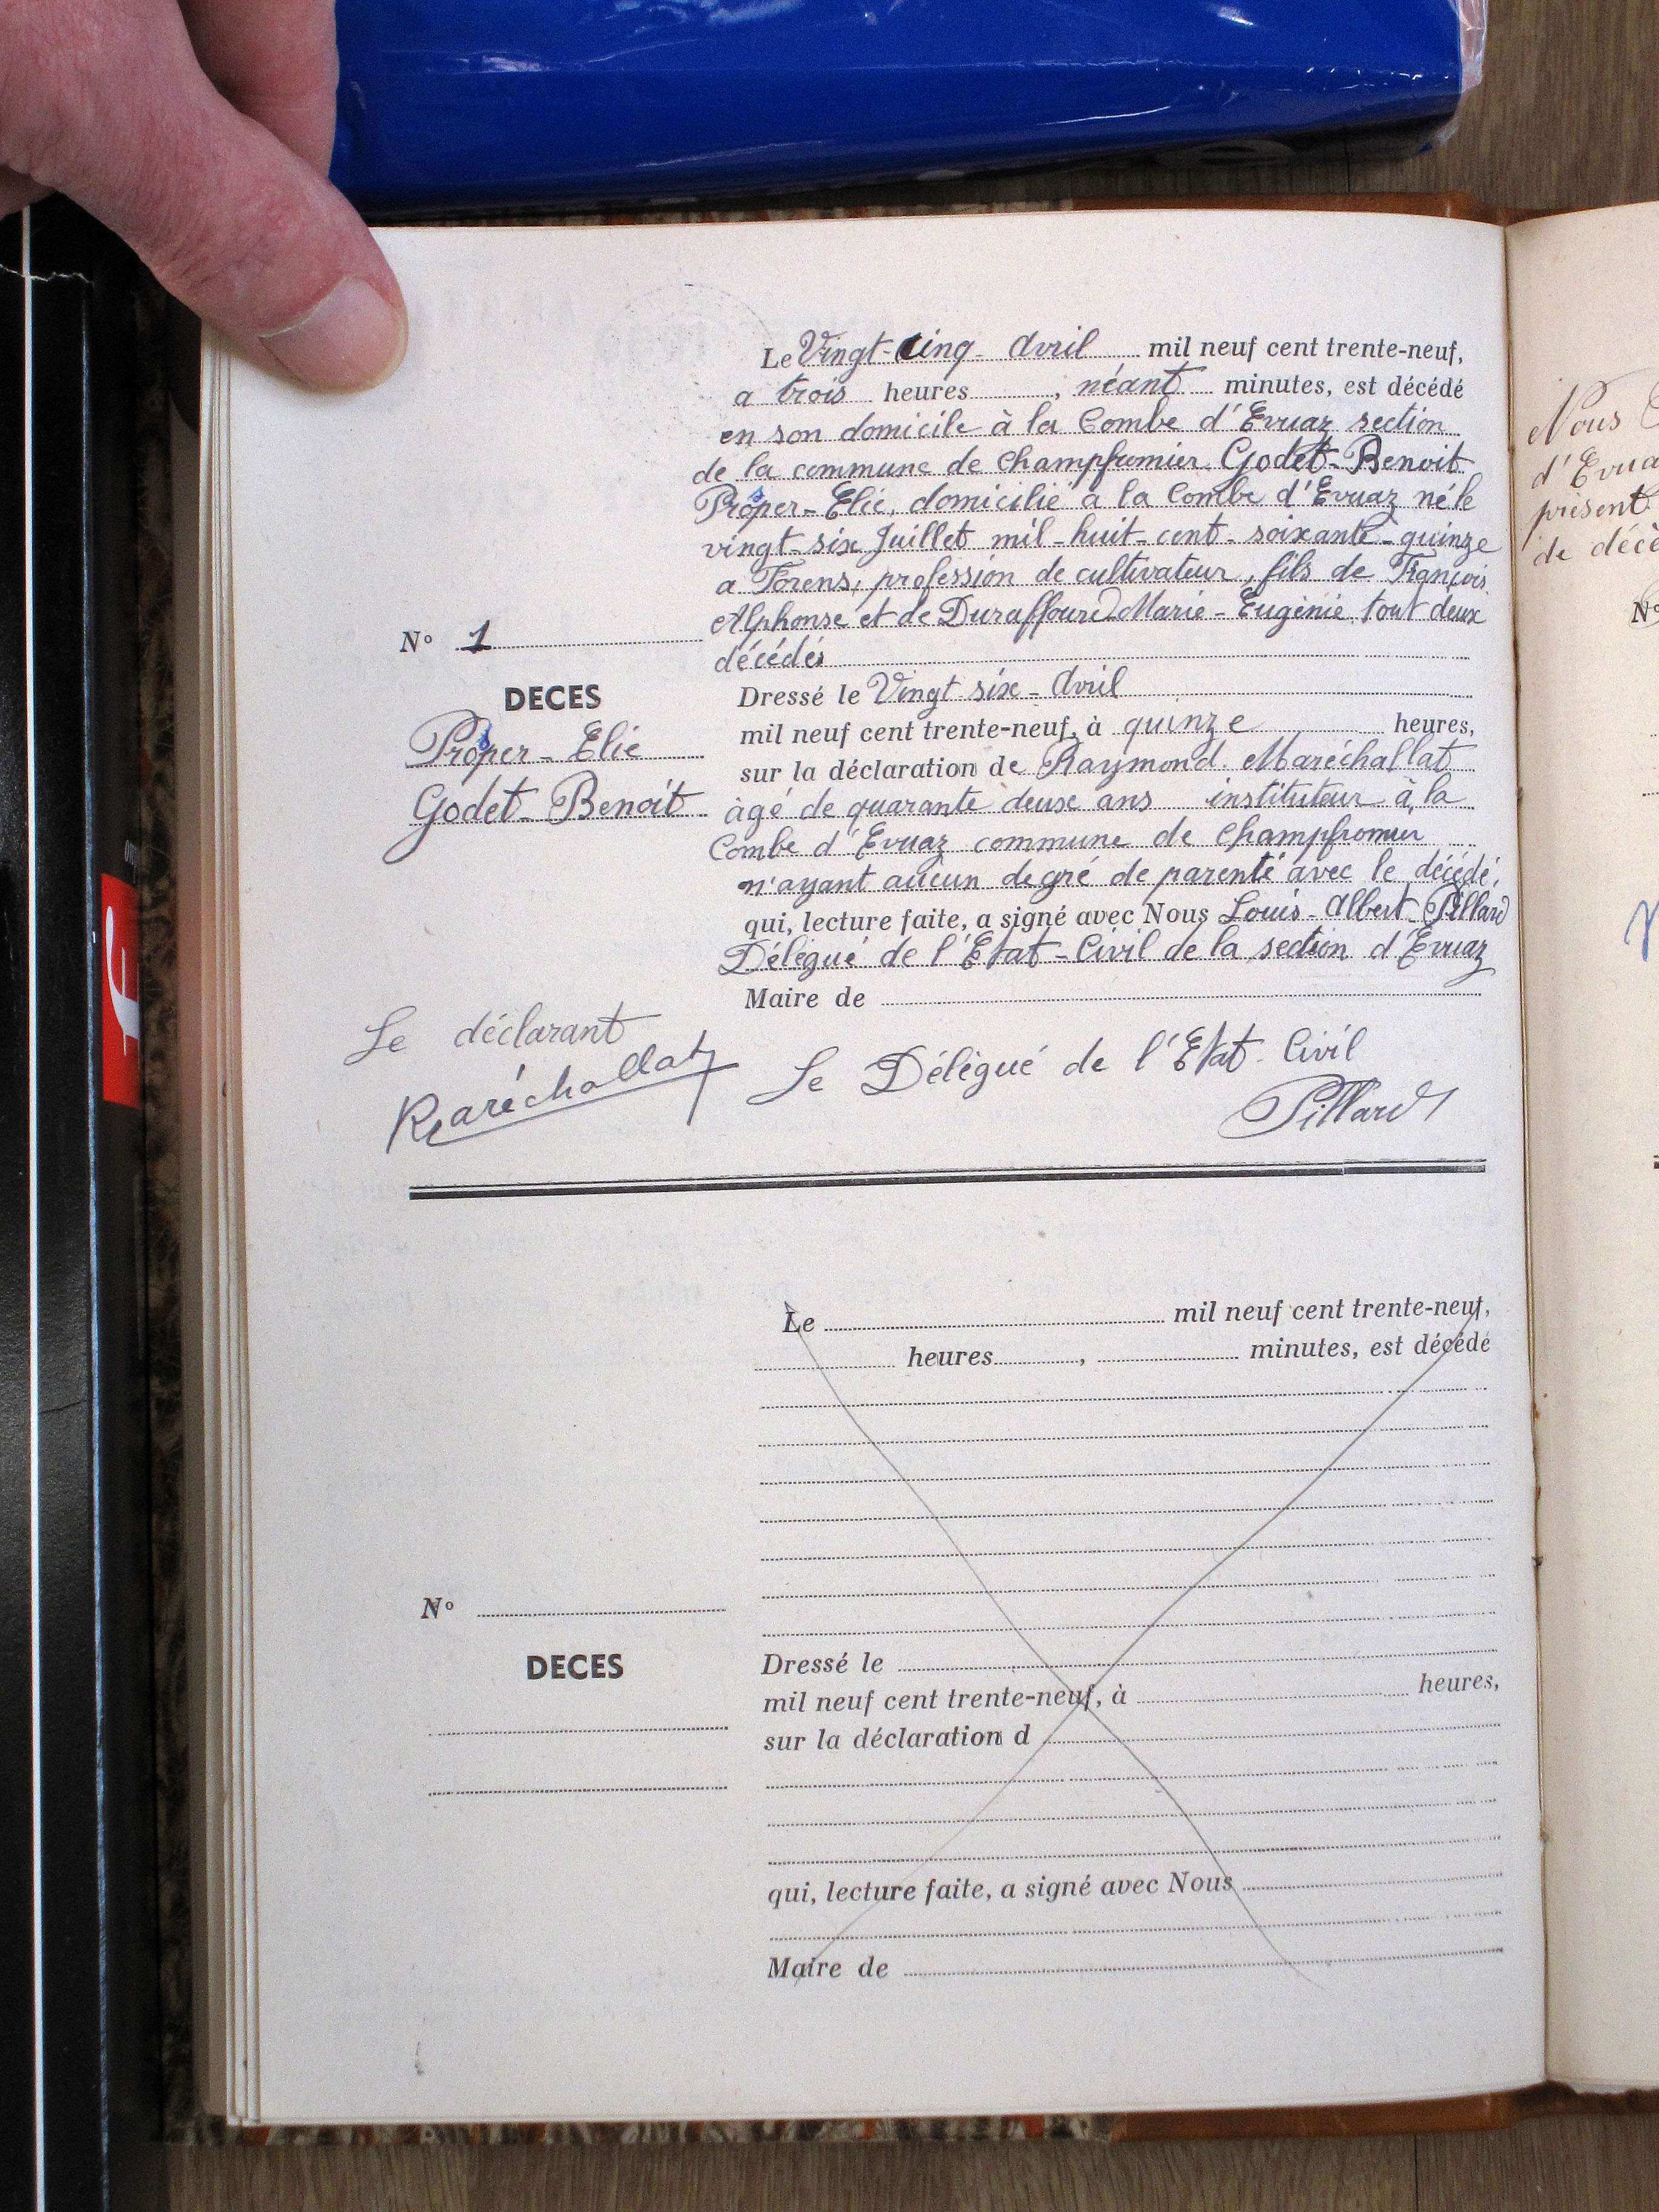 Le Vingt-cinq Avril mil neuf cent trente-neuf,
a trois heures, néant minutes, est décédé
en son domicile à la Combe d'Evuaz section
de la commune de Champfromier Godet-Benoit
Prosper-Elie, domicilié a la Combe d'Evuaz né le
vingt-six Juillet mil-huit-cent-soixante-quinze
a Forens, profession de cultivateur, fils de François
Alphonse et de Duraffourd Marie-Eugénie, tout deux
décédés
N° 1
DECES
Prosper-Elie
Godet-Benoit
Dressé le Vingt six-Avril
mil neuf cent trente-neuf, à quinze heures,
sur la déclaration de Raymond Maréchallat
âgé de quarante deux ans instituteur à la
Combe d'Evuaz commune de Champfromier
n'ayant aucun degré de parenté avec le décédé,
qui, lecture faite, a signé avec Nous Louis-Albert-Pillard
Délégué de l'Etat-Civil de la section d'Evuaz
Maire de
Le déclarant
Maréchallat
Le Délégué de l'Etat-Civil
Pillard
Le mil neuf cent trente-neuf,
heures, minutes, est décédé
N°
DECES
Dressé le
mil neuf cent trente-neuf, à heures,
sur la déclaration d
qui, lecture faite, a signé avec Nous
Maire de
Nous
d'Evua
présent
de décè
N°